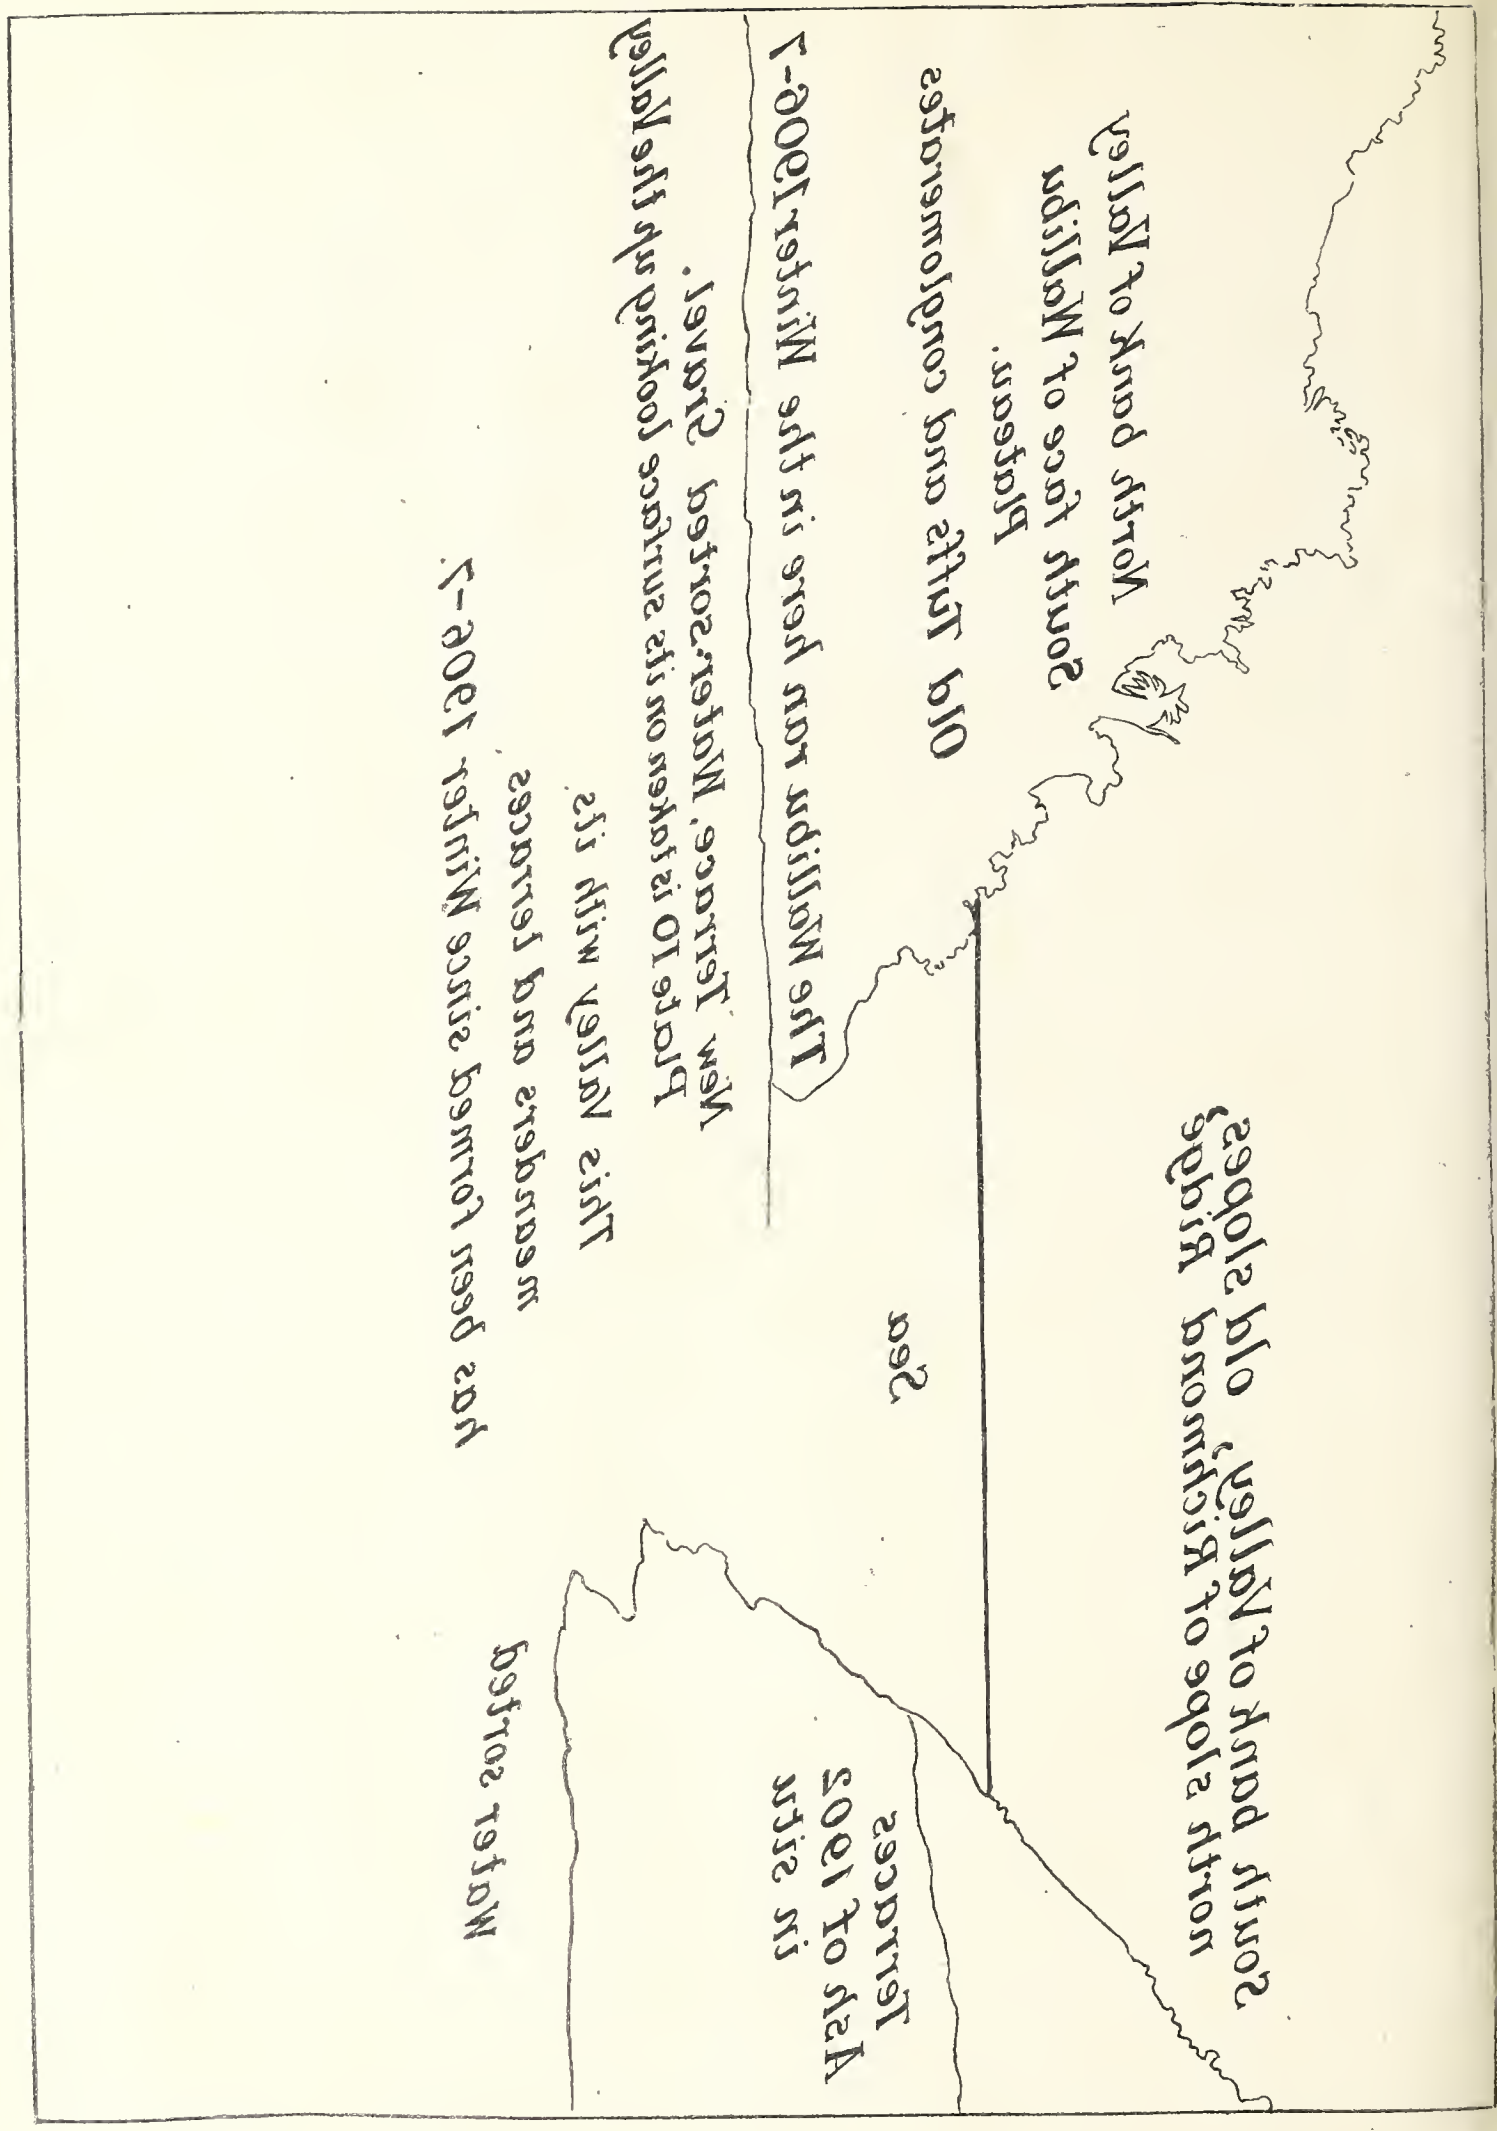 North bank of Valley
South face of Wallibu
Plateau.
Old Tuffs and conglomerates
The Wallibu ran here in the Winter 1906-7
New Terrace, Water-sorted Gravel.
Plate 10 is taken on its surface looking up the Valley
This Valley with its
meanders and terraces
has been formed since Winter 1906-7.
Sea
South bank of Valley, old slopes,
north slope of Richmond Ridge
Terraces
Ash of 1902
in situ
Water sorted